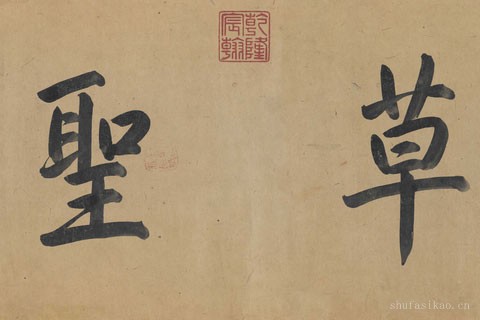 草聖
乾隆
宸翰
shufasikao.cn